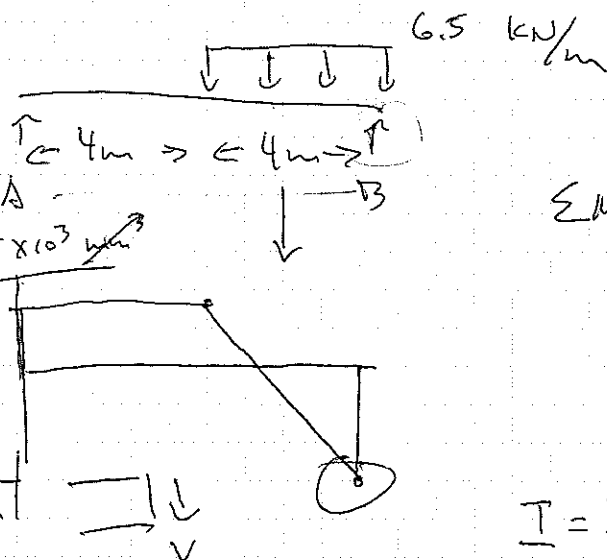 6.5 kN/m
← 4m → ← 4m →
A
B
x10³ mm³
ΣM
V
I =